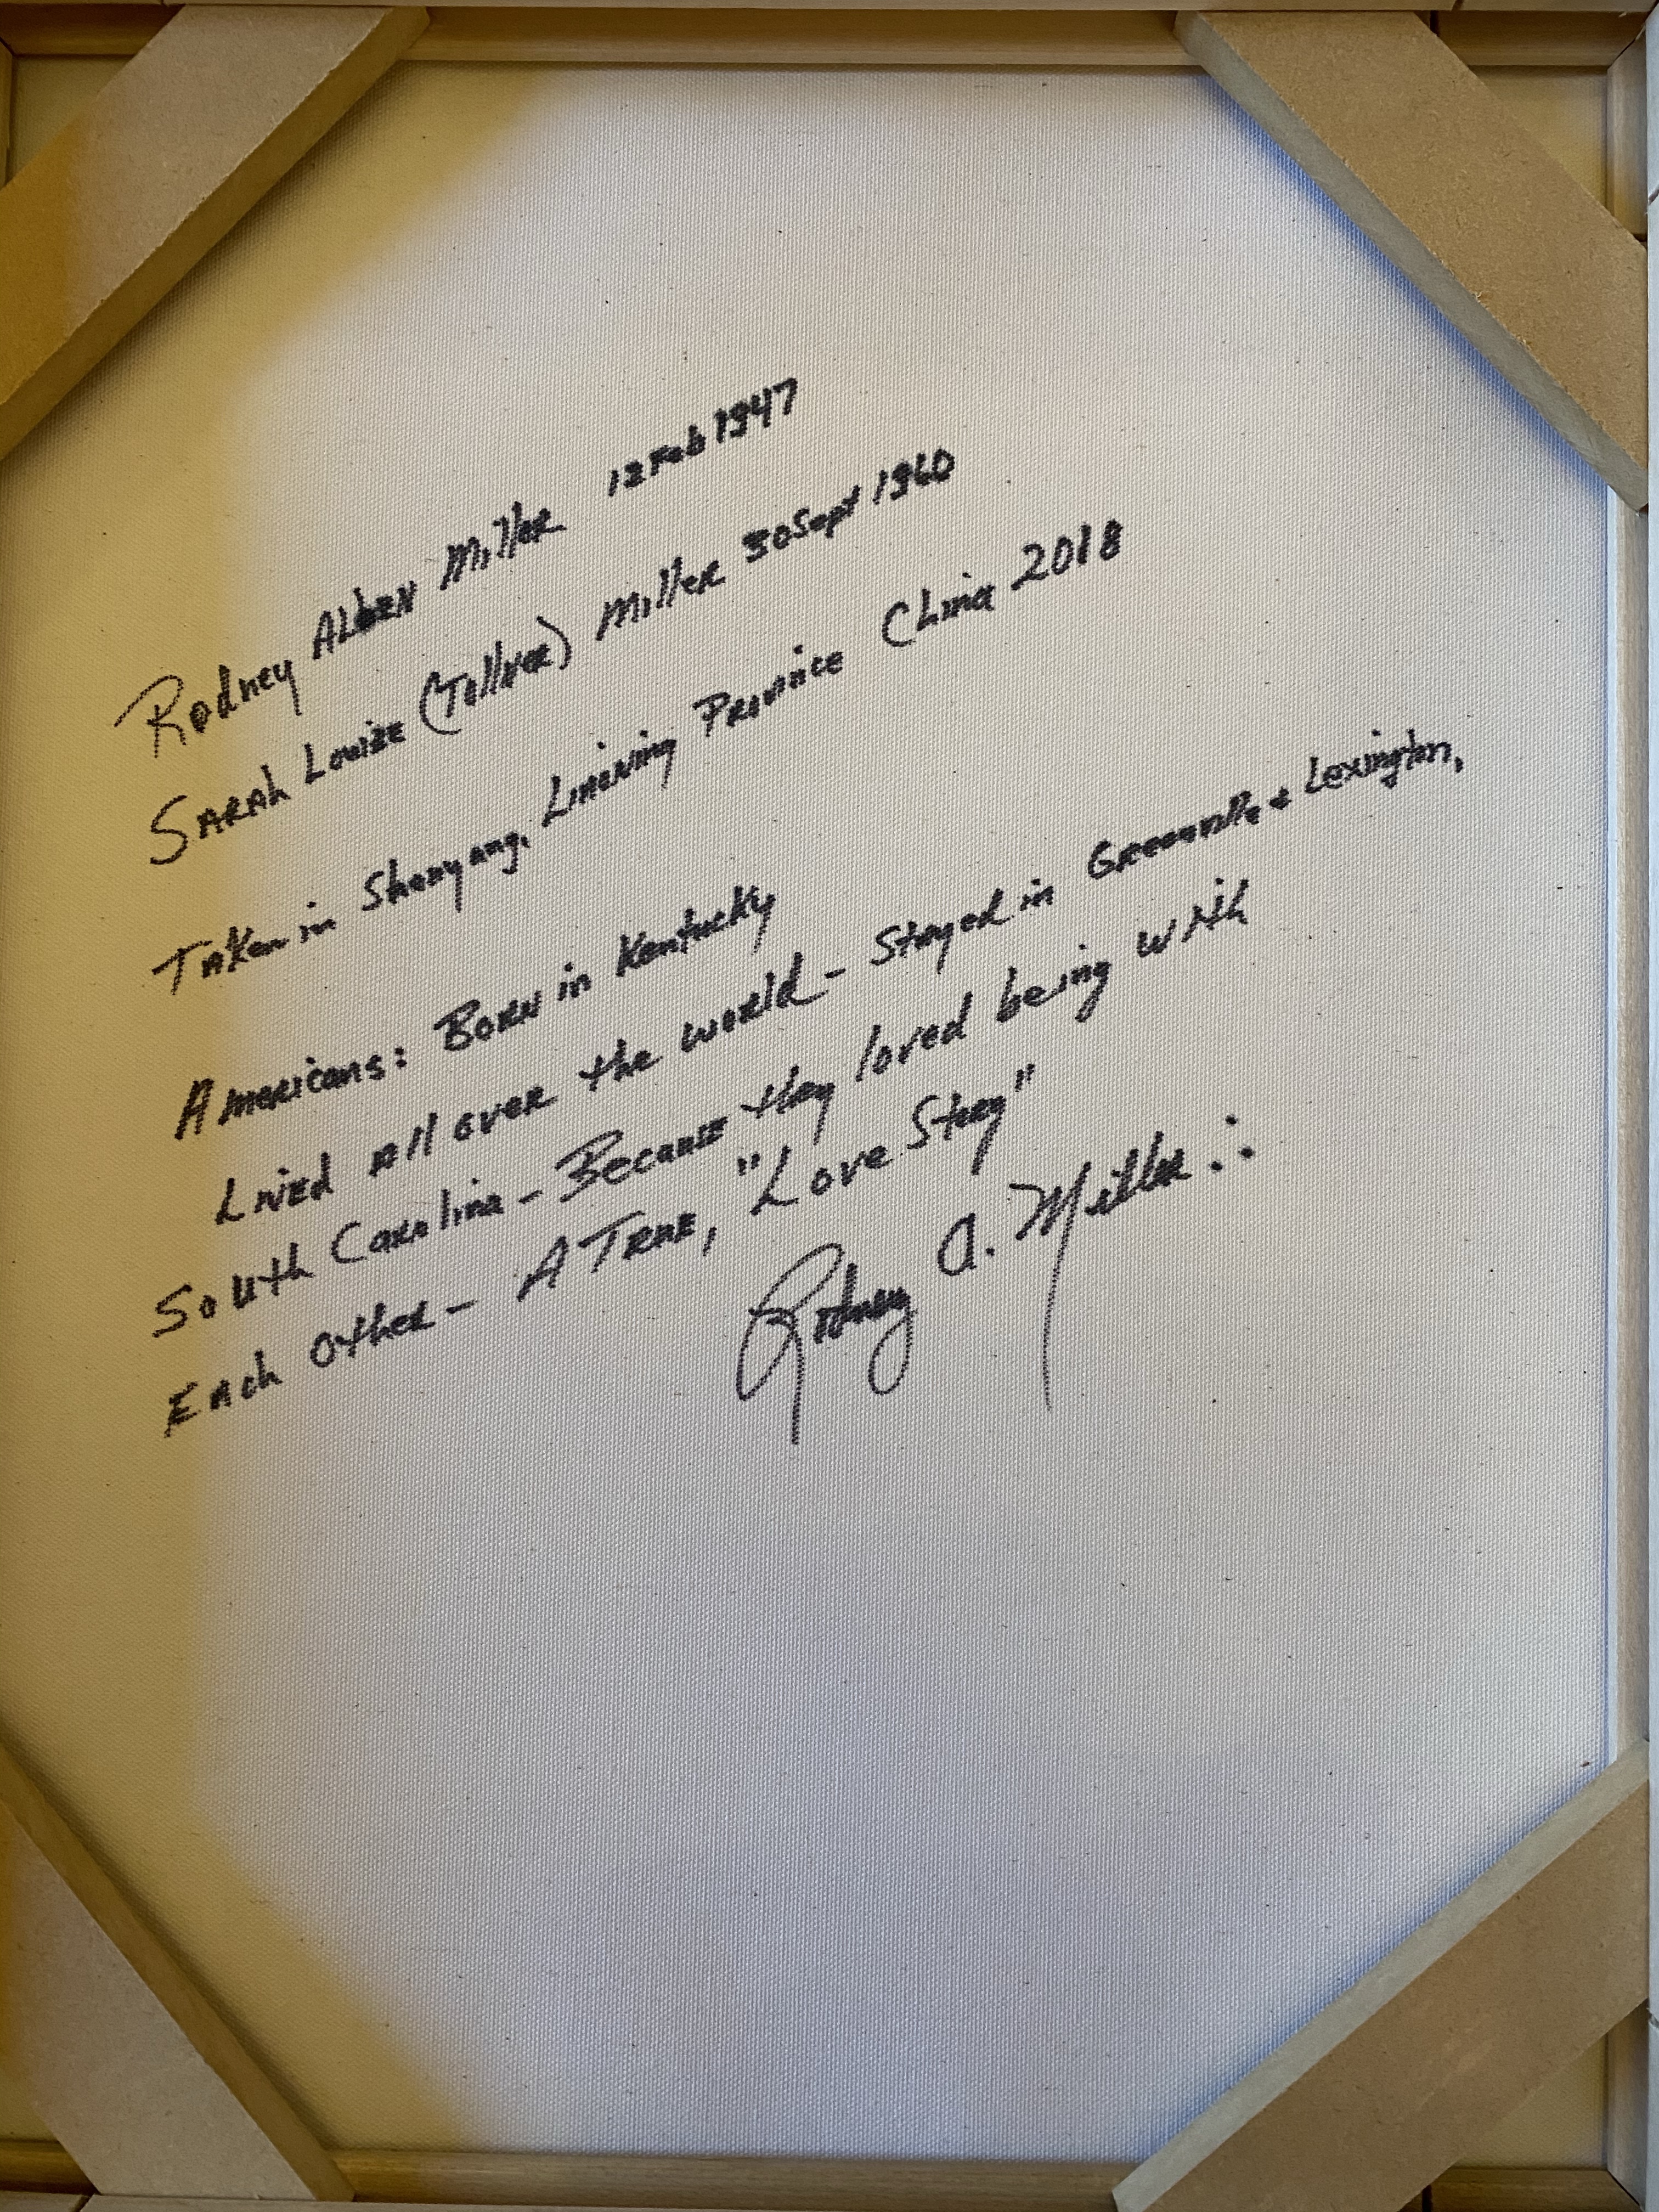 Rodney Alben Miller 12 Feb 1947
Sarah Louise (Tolliver) Miller 30 Sept 1960
Taken in Shenyang, Lineining Province China 2018
Americans: Born in Kentucky
Lived all over the world - Stayed in Greenville & Lexington,
South Carolina - Because they loved being with
Each other - A True, "Love Story"
Rodney A. Miller ∴